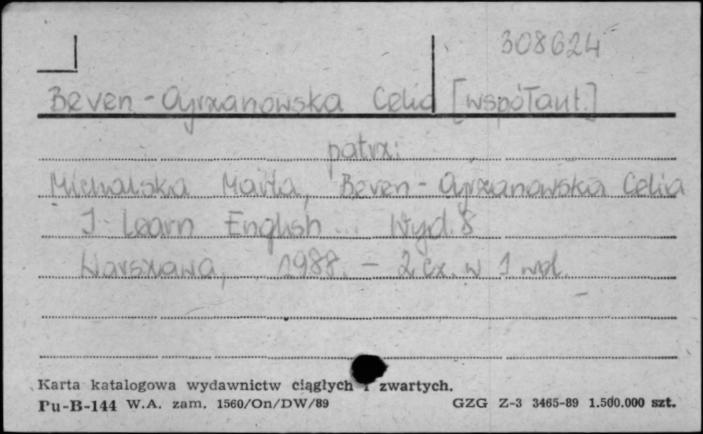 308624
Beven-Ayrxanowska Celia [współaut.]
patrx:
Michalska Marta, Beven-Ayrxanowska Celia
I Learn English ... Wyd. 8
Warsxawa, 1988. - 2 cx. w 1 wol.
Karta katalogowa wydawnictw ciągłych i zwartych.
Pu-B-144 W.A. zam. 1560/On/DW/89 GZG Z-3 3465-89 1.500.000 szt.